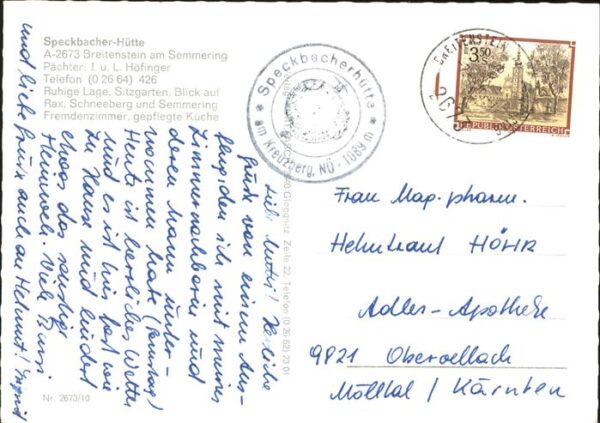 Speckbacher-Hütte
A-2673 Breitenstein am Semmering
Pächter: J. u. L. Höfinger
Telefon (0 26 64) 426
Ruhige Lage, Sitzgarten, Blick auf
Rax, Schneeberg und Semmering
Fremdenzimmer, gepflegte Küche
* Speckbacherhütte *
am Kreuzberg, NÖ - 1089 m
BREITENSTEIN
2673
3.50
REPUBLIK ÖSTERREICH
Liebe Mutti! Herzliche
Grüße von einem Aus-
flug, den ich mit meiner
Zimmernachbarin und
deren Mann unter-
nommen habe (Samstag)
Heute ist herrliches Wetter
und es ist hier fast wie
zu Hause und lindert
etwas das sonstige
Heimweh. Viele Bussi
und liebe Grüße auch an Helmut! Sigrid
Gloggnitz, Zeile 22, Telefon (0 26 62) 23 01
Frau Mag. pharm.
Helmtraut HÖHR
Adler-Apotheke
9821 Obervellach
Mölltal / Kärnten
Nr. 2673/10